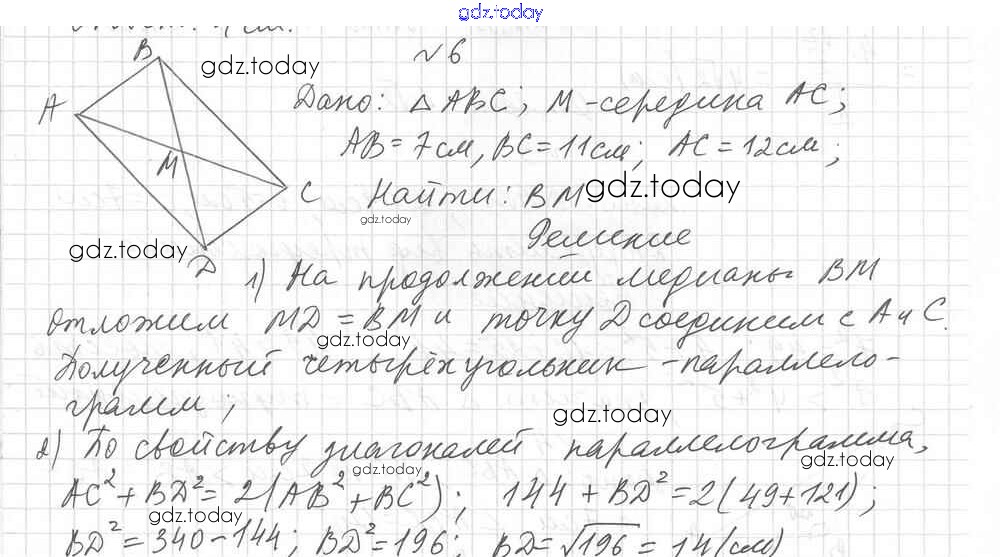 gdz.today
№ 6
B
gdz.today
A
Дано: △ ABC; M - середина AC;
AB = 7 см, BC = 11 см; AC = 12 см;
M
C
Найти: BM
gdz.today
gdz.today
Решение
gdz.today
D
1) На продолжении медианы BM
отложим MD = BM и точку D соединим с A и C.
gdz.today
Полученный четырёхугольник - параллело-
грамм;
gdz.today
2) По свойству диагоналей параллелограмма,
gdz.today
gdz.today
AC² + BD² = 2(AB² + BC²); 144 + BD² = 2(49 + 121);
gdz.today
BD² = 340 - 144; BD² = 196; BD = √196 = 14 (см)